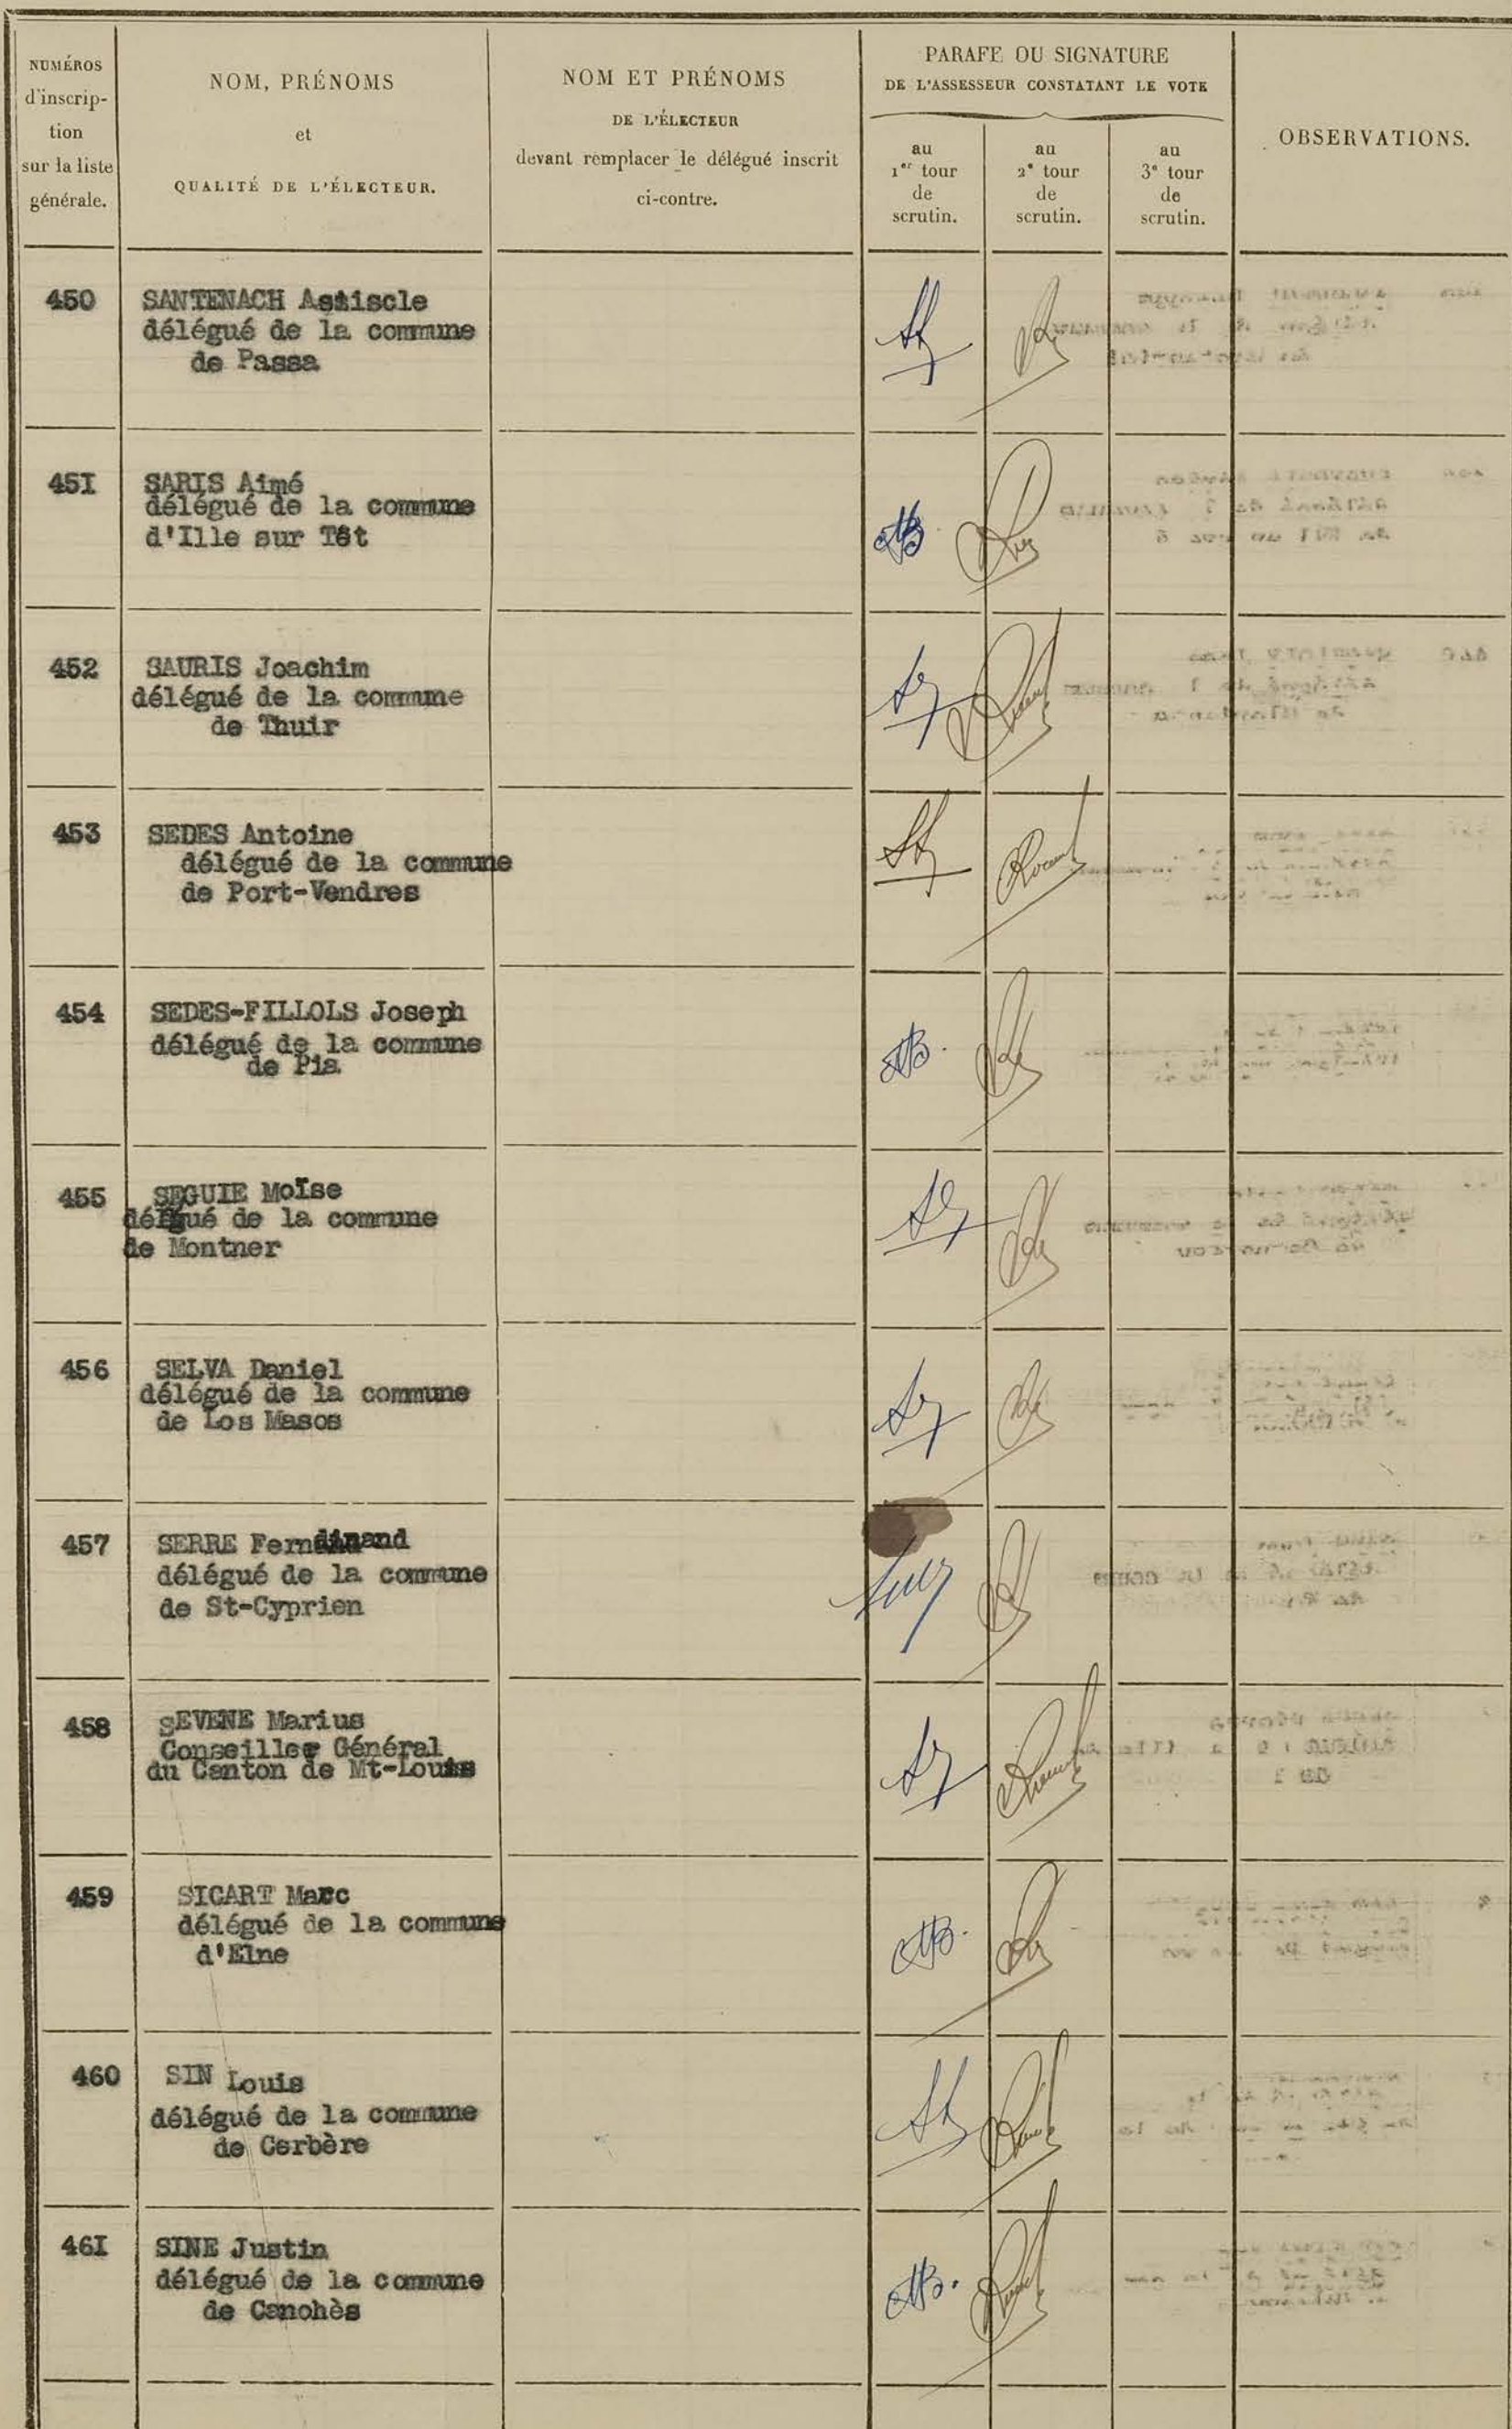 NUMÉROS
d'inscrip-
tion
sur la liste
générale.
NOM, PRÉNOMS
et
QUALITÉ DE L'ÉLECTEUR.
NOM ET PRÉNOMS
DE L'ÉLECTEUR
devant remplacer le délégué inscrit
ci-contre.
PARAFE OU SIGNATURE
DE L'ASSESSEUR CONSTATANT LE VOTE
au
1er tour
de
scrutin.
au
2e tour
de
scrutin.
au
3e tour
de
scrutin.
OBSERVATIONS.
450
SANTENACH Astiscle
délégué de la commune
de Passa
45I
SARIS Aimé
délégué de la commune
d'Ille sur Têt
452
SAURIS Joachim
délégué de la commune
de Thuir
453
SEDES Antoine
délégué de la commune
de Port-Vendres
454
SEDES-FILLOLS Joseph
délégué de la commune
de Pia
455
SEGUIE Moïse
délégué de la commune
de Montner
456
SELVA Daniel
délégué de la commune
de Los Masos
457
SERRE Ferndinand
délégué de la commune
de St-Cyprien
458
SEVENE Marius
Conseiller Général
du Canton de Mt-Louis
459
SICART Marc
délégué de la commune
d'Elne
460
SIN Louis
délégué de la commune
de Cerbère
46I
SINE Justin
délégué de la commune
de Canohès